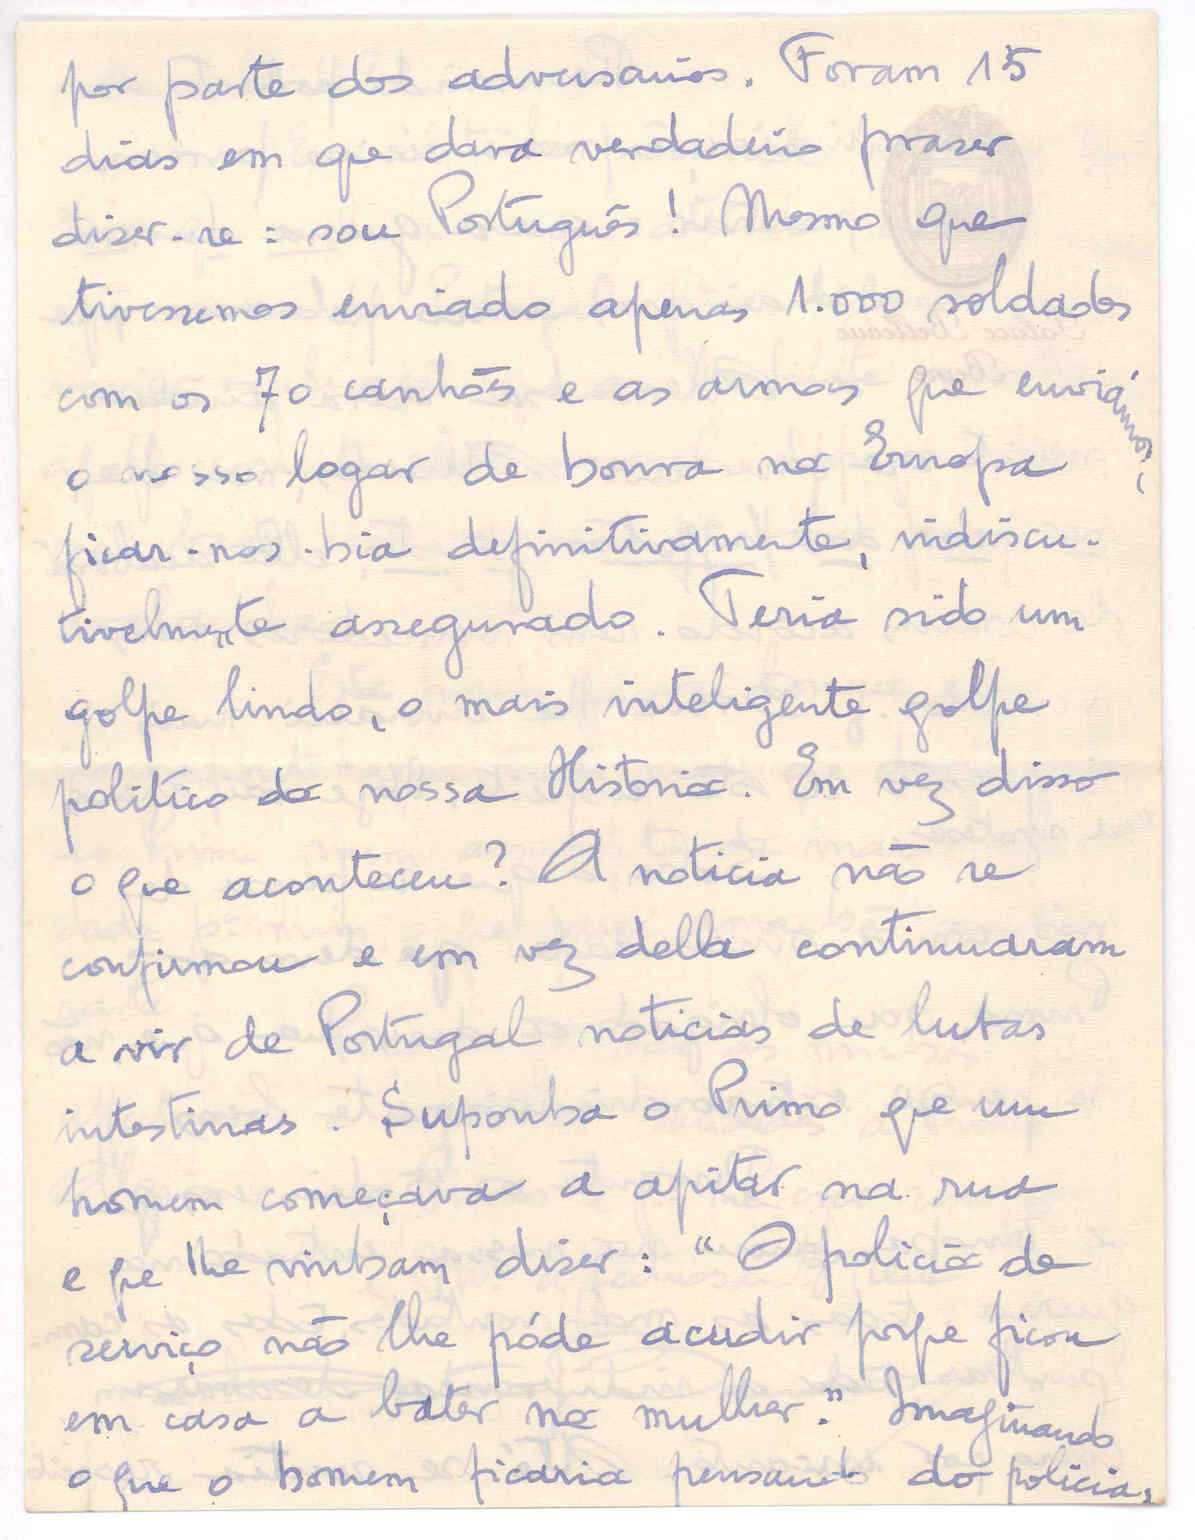 por parte dos adversarios. Foram 15
dias em que dava verdadeiro praser
diser-se: sou Português! Mesmo que
tivessemos enviado apenas 1.000 soldados
com os 70 canhões e as armas que enviámos,
o nosso logar de honra na Europa
ficar-nos-hia definitivamente, indiscu-
tivelmente assegurado. Teria sido um
golpe lindo, o mais inteligente golpe
politico da nossa Historia. Em vez disso
o que aconteceu? A noticia não se
confirmou e em vez della continuaram
a vir de Portugal noticias de lutas
intestinas. Suponha o Primo que um
homem começava a apitar na rua
e que lhe vinham diser: "O policia de
serviço não lhe póde acudir porque ficou
em casa a bater na mulher." Imaginando
o que o homem ficaria pensando do policia,